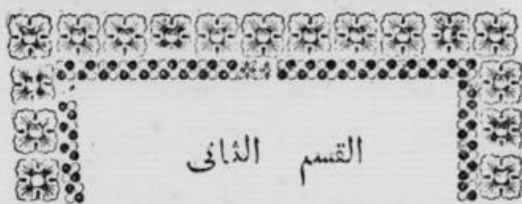 القسم الثانى